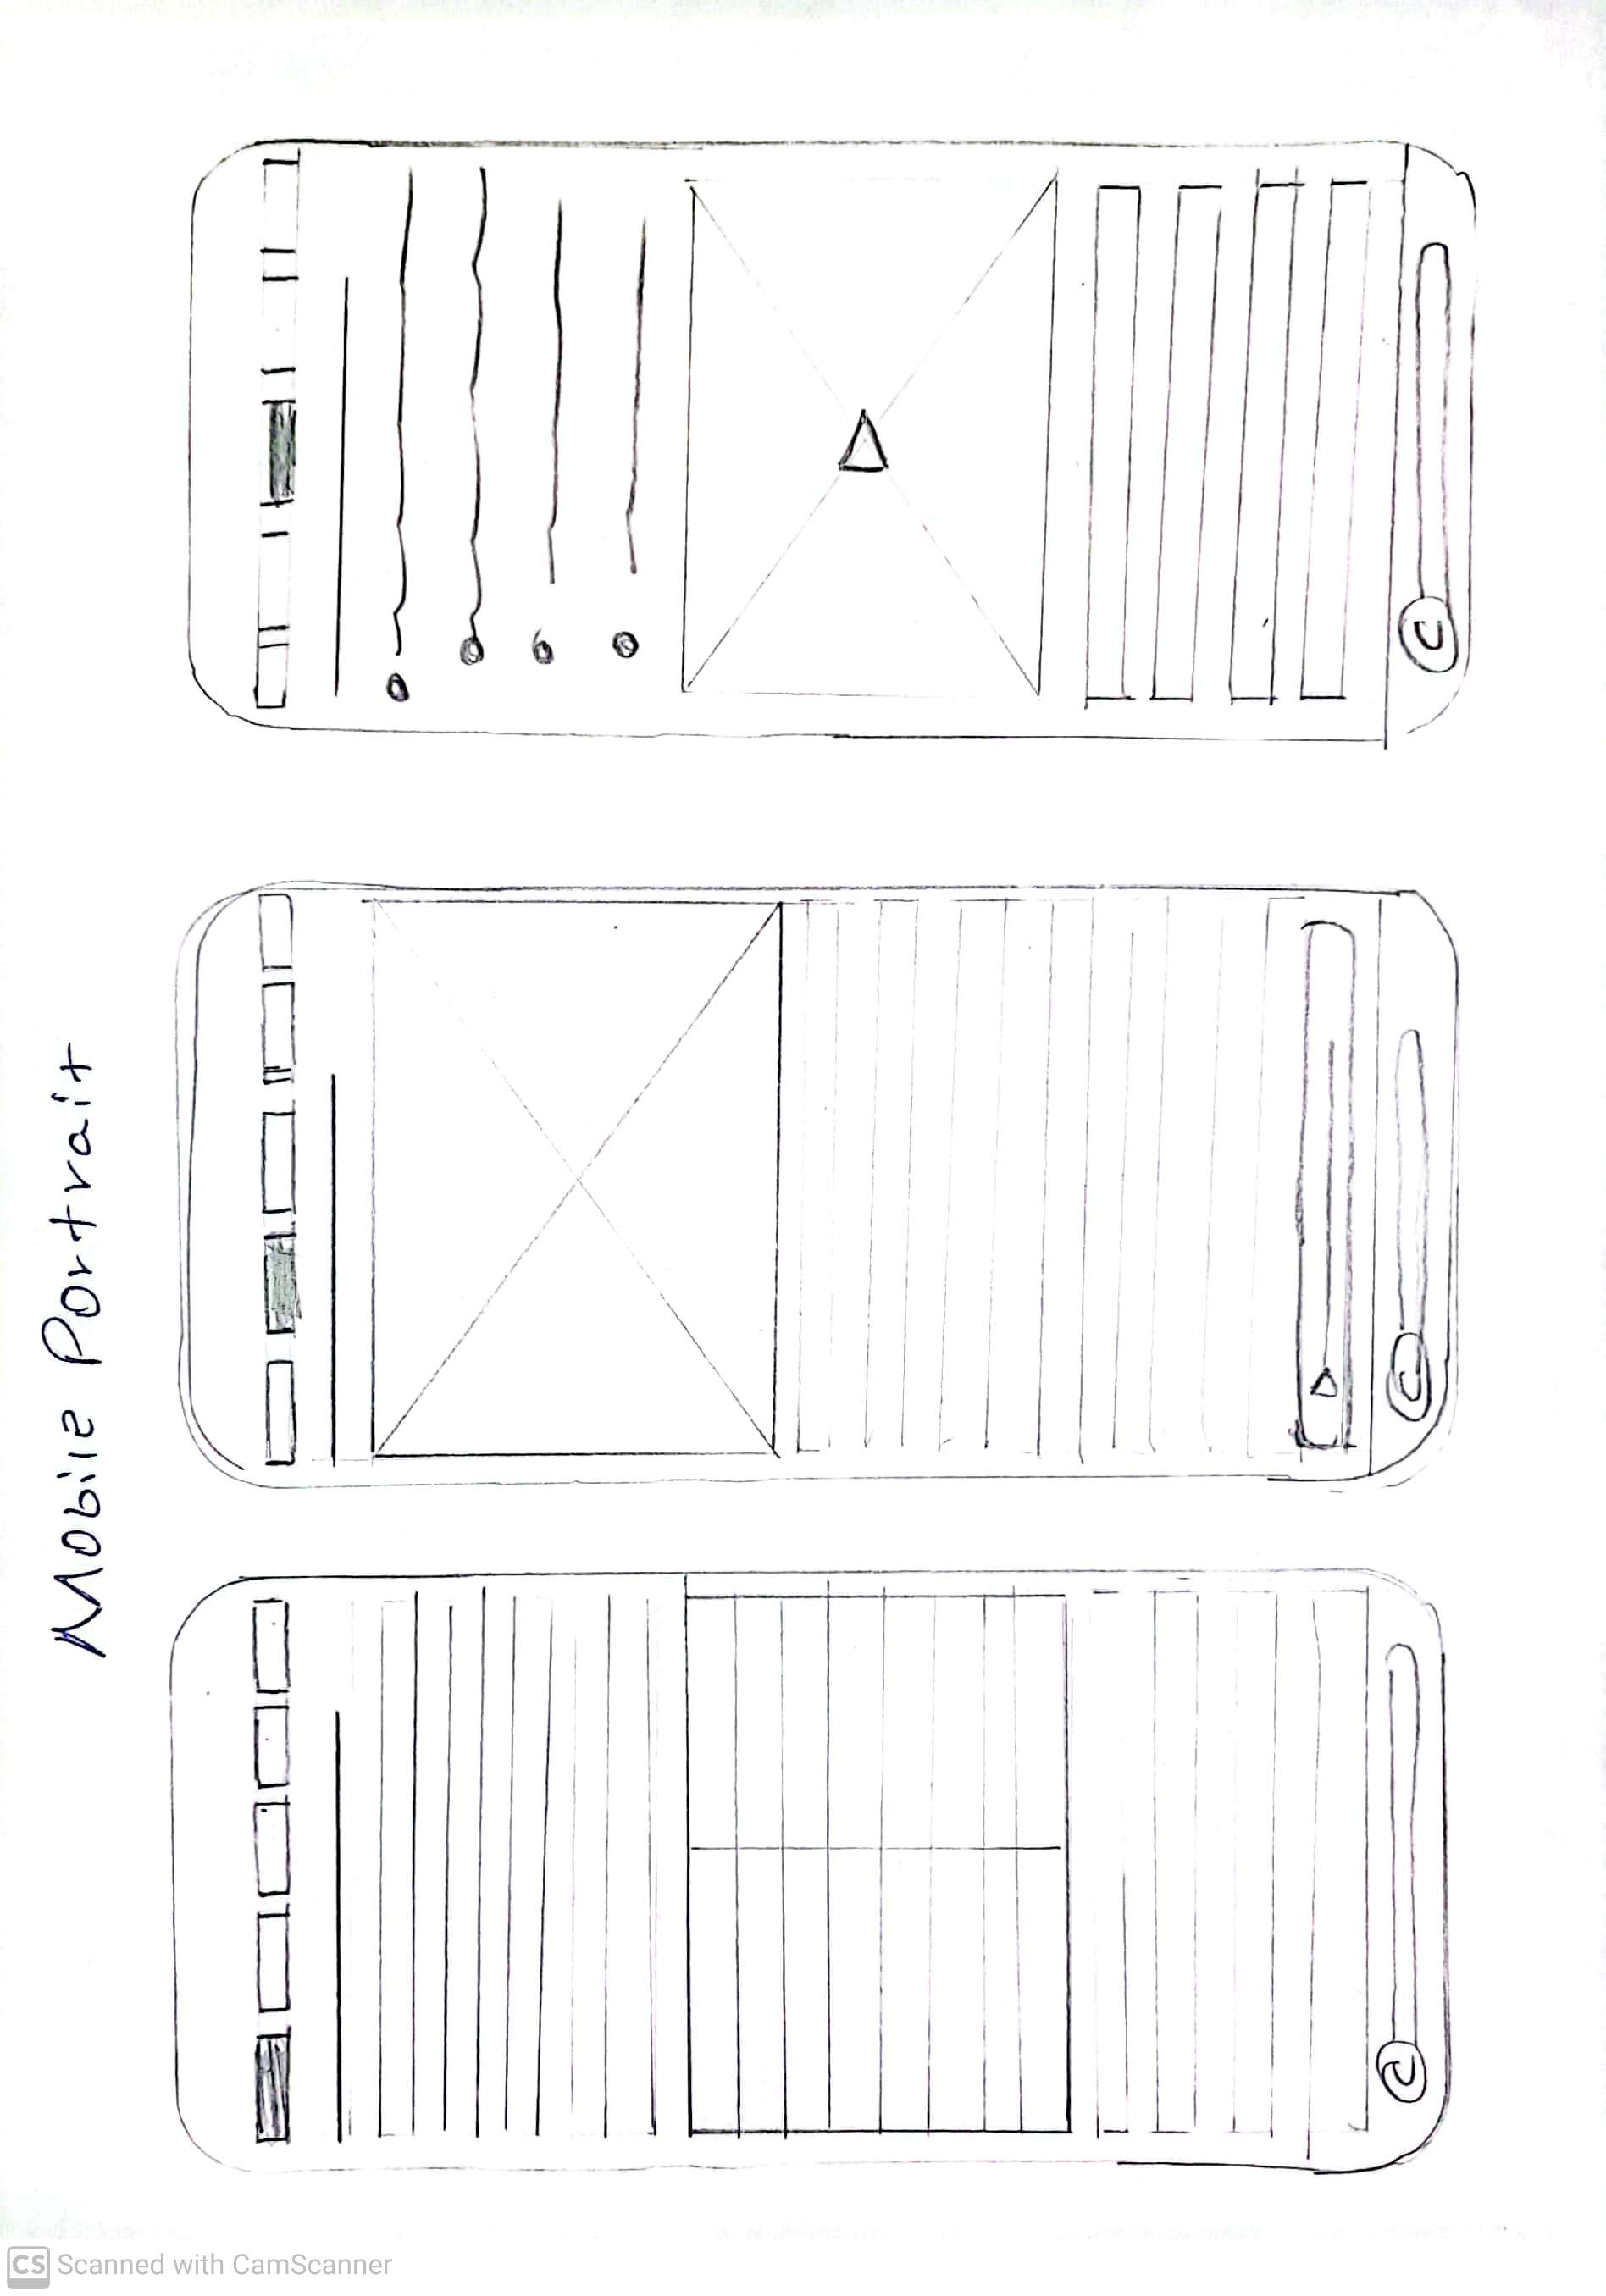 Mobile Portrait
C
C
C
CS Scanned with CamScanner